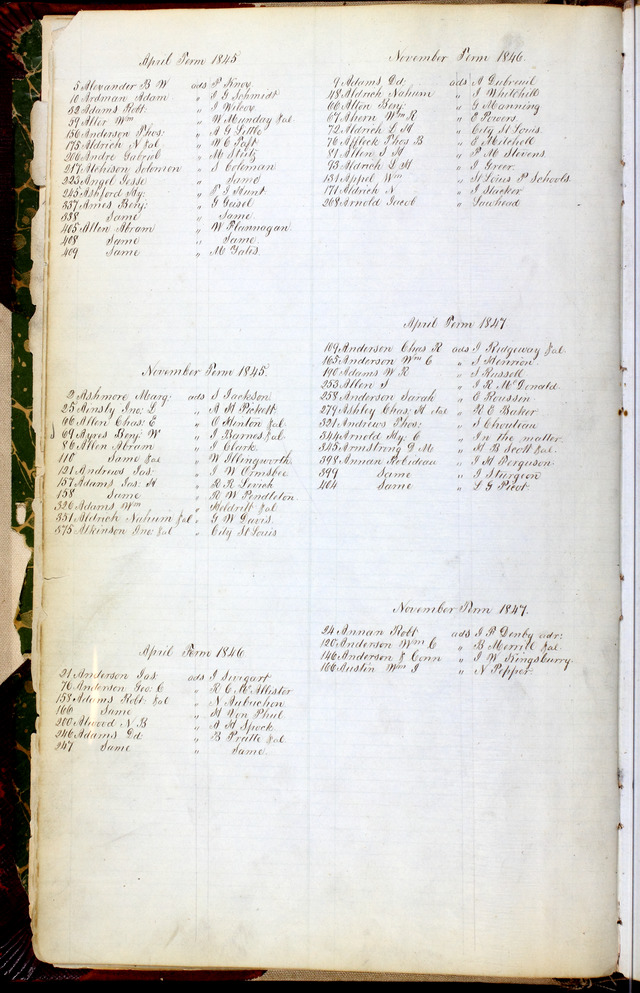 April Term 1845
5 Alexander B W ads P Knox
10 Ardman Adam „ F G Schmidt
52 Adams Robt. „ I Wilcox
59 Aller Wm „ W Munday &al
156 Anderson Thos: „ A G Little
175 Aldrich N &al „ W C Taft
206 Andre Gabriel „ M Stitz
217 Atchison Solomon „ S Coleman
223 Angel Jesse „ Same
245 Ashford Hy: „ P I Hunt
337 Ames Benj: „ G Geisel
338 Same „ Same.
405 Allen Abram „ W Flannagan.
408 Same „ Same.
409 Same „ M Tales.
November Term 1845.
2 Ashmore Marg: ads S Jackson
25 Ainsly Jno: L „ A H Pickett
66 Allen Chas: E „ O Hinton &al
69 Ayres Benj: W „ I Barnes &al
86 Allen Abram „ I Clark.
118 Same &al „ W Illingworth
121 Andrews Jas: „ I W Ormsbee
157 Adams Jas: H „ R R Levick
158 Same „ R W Pendleton
326 Adams Wm „ Holdrift &al
351 Aldrich Nahum &al „ G W Davis.
375 Atkinson Jno &al „ City St Louis
April Term 1846
21 Anderson Jas: ads I Swigart
70 Anderson Geo: C „ R C McAllister
158 Adams Robt: &al „ N Aubuchon
166 Same „ H Von Phul
200 Atwood N B „ A H Spock
246 Adams Ed „ B Pratte &al
247 Same „ Same.
November Term 1846.
9 Adams Ed. ads A Gabreuil
48 Aldrich Nahum „ I Whitehill
66 Allen Benj: „ G Manning
67 Ahern Wm R „ E Powers.
72 Aldrich L H „ City St Louis.
76 Affleck Thos B „ E Mitchell
81 Allen S H „ P M Stevens
93 Aldrich L H „ I Greer
131 Appel Wm „ St Louis P Schools
171 Aldrich N „ I Stacker
268 Arnold Jacob „ Lawhead
April Term 1847
109 Anderson Chas R ads I Ridgeway &al
165 Anderson Wm C „ I Henrion
190 Adams W R „ S Russell
253 Allen S „ I R McDonald
258 Anderson Sarah „ E Roussin
279 Ashley Chas: H &al „ R E Baker
321 Andrews Thos: „ S Chouteau
344 Arnold Hy: C „ In the matter.
345 Armstrong D M „ H B Scott &al.
398 Annan Robideau „ I H Ferguson
399 Same „ I Sturgeon
404 Same „ L G Picot
November Term 1847.
24 Annan Robt ads I P Denby adr:
120 Anderson Wm C „ B Merril &al
146 Anderson & Conn „ I W Kingsburry
166 Austin Wm I „ N Pepper.